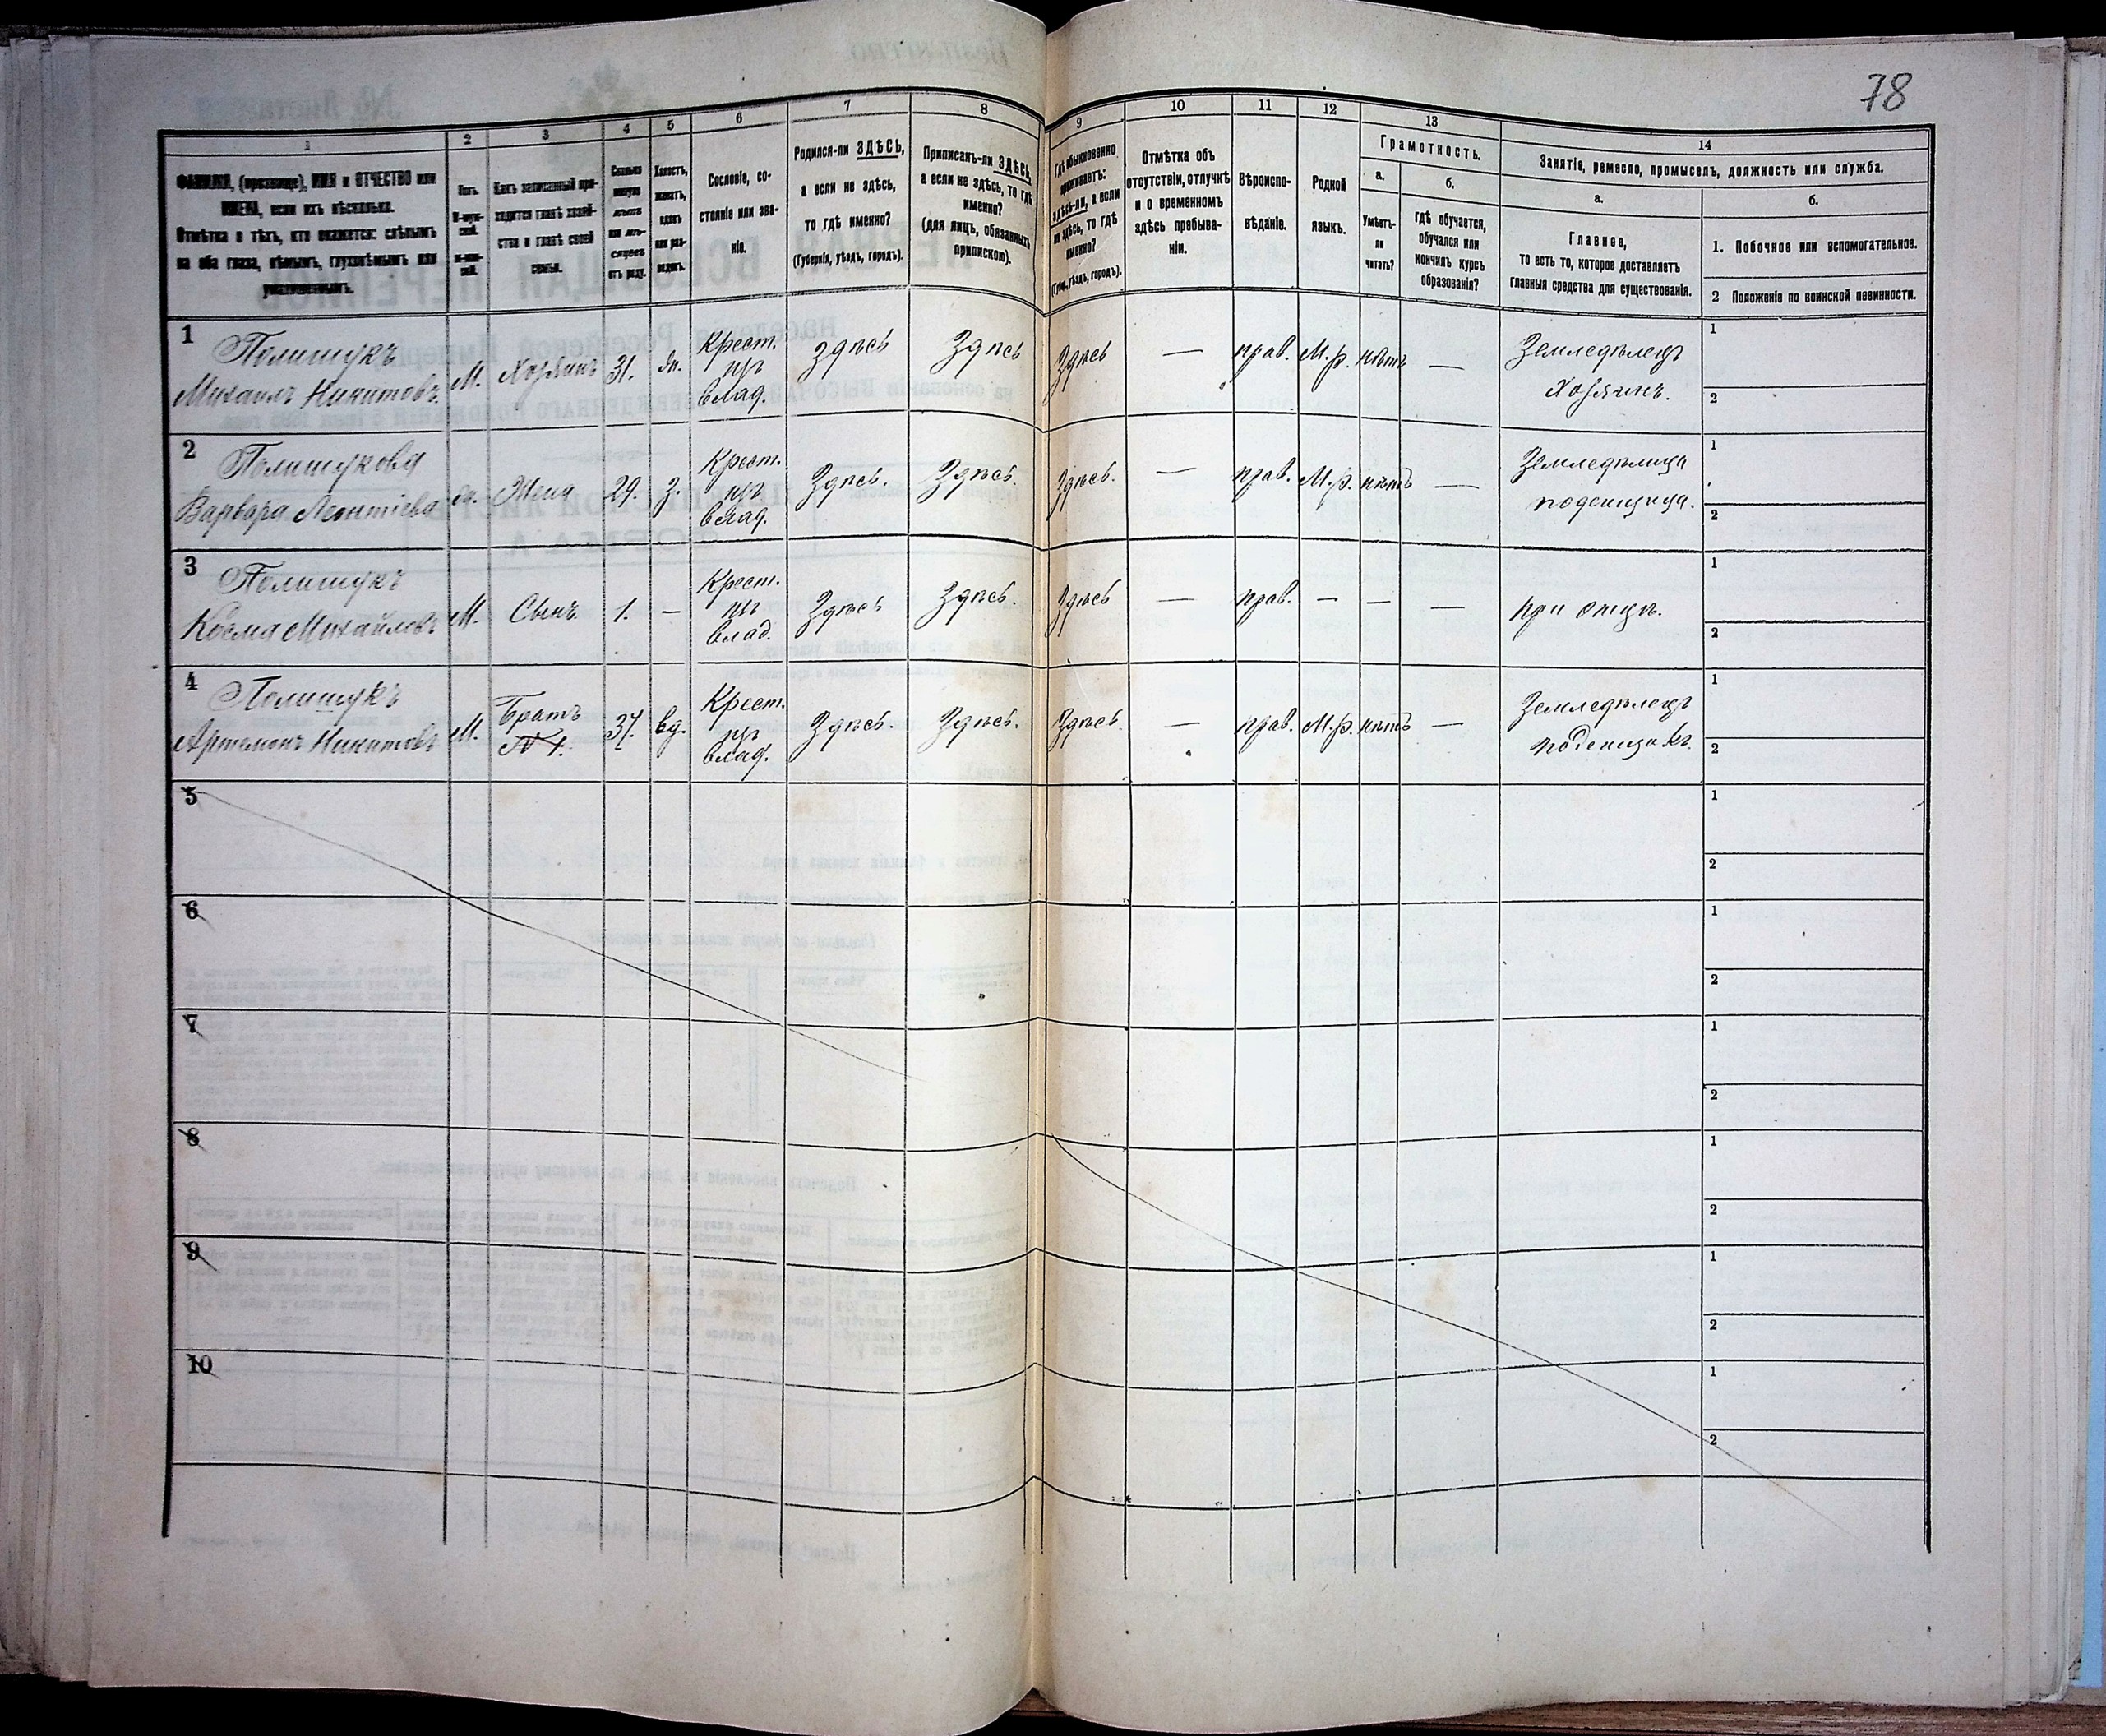 78
1
2
3
4
5
6
7
8
9
10
11
12
13
14
ФАМИЛІЯ, (прозвище), ИМЯ и ОТЧЕСТВО или
ИМЕНА, если ихъ нѣсколько.
Отмѣтка о тѣхъ, кто окажется: слѣпымъ
на оба глаза, нѣмымъ, глухонѣмымъ или
умалишеннымъ.
Полъ.
М-муж-
ской.
Ж-жен-
скій.
Какъ записанный при-
ходится главѣ хозяй-
ства и главѣ своей
семьи.
Сколько
минуло
лѣтъ
или мѣ-
сяцевъ
отъ роду.
Холостъ,
женатъ,
вдовъ
или раз-
веденъ.
Сословіе, со-
стояніе или зва-
ніе.
Родился-ли ЗДѢСЬ,
а если не здѣсь,
то гдѣ именно?
(Губернія, уѣздъ, городъ).
Приписанъ-ли ЗДѢСЬ,
а если не здѣсь, то гдѣ
именно?
(для лицъ, обязанныхъ
припискою).
Гдѣ обыкновенно
проживаетъ:
здѣсь-ли, а если
не здѣсь, то гдѣ
именно?
(Губ., уѣздъ, городъ).
Отмѣтка объ
отсутствіи, отлучкѣ
и о временномъ
здѣсь пребыва-
ніи.
Вѣроиспо-
вѣданіе.
Родной
языкъ.
Грамотность.
а.
Умѣетъ-
ли
читать?
б.
гдѣ обучается,
обучался или
кончилъ курсъ
образованія?
Занятіе, ремесло, промыселъ, должность или служба.
а.
Главное,
то есть то, которое доставляетъ
главныя средства для существованія.
б.
1. Побочное или вспомогательное.
2 Положеніе по воинской повинности.
1 Полищукъ
Михаилъ Никитовъ.
М. Хозяинъ 31. жн.
Крест.
изъ
влад.
Здѣсь Здѣсь Здѣсь — прав. М.р. нѣтъ —
Земледѣлецъ
Хозяинъ.
1
2
2 Полищукова
Варвара Леонтіева
Жена 29. з.
Крест.
изъ
влад.
Здѣсь. Здѣсь. Здѣсь. — прав. М.р. нѣтъ —
Земледѣлица
поденщица.
1
2
3 Полищукъ
Косма Михайловъ
М. Сынъ. 1. —
Крест.
изъ
влад.
Здѣсь Здѣсь. Здѣсь — прав. — — —
при отцѣ.
1
2
4 Полищукъ
Артемонъ Никитовъ
М. Братъ
N 1.
37. вд.
Крест.
изъ
влад.
Здѣсь. Здѣсь. Здѣсь. — прав. М.р. нѣтъ —
Земледѣлецъ
поденщикъ.
1
2
5
1
2
6
1
2
7
1
2
8
1
2
9
1
2
10
1
2